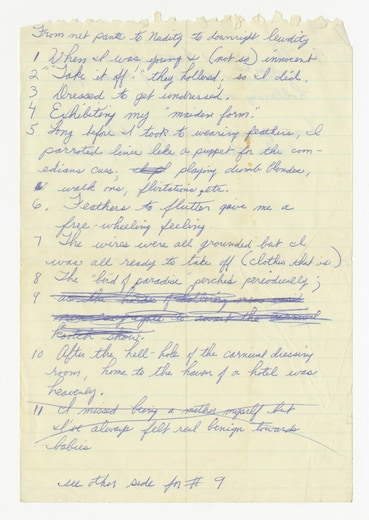 From net pants to Nudity to downright Lewdity
1 When I was young & (not so) innocent
2 "Take it off!" they hollered. so I did.
3 Dressed to get undressed.
4 Exhibiting my "maiden form."
5 Long before I took to wearing feathers, I
parroted lines like a puppet for the com-
edians cues, playing dumb blondes,
walk ons, flirtations, etc.
6. Feathers to flutter gave me a
free-wheeling feeling
7 The wires were all grounded but I
was all ready to take off (clothes that is)
8 The "bird of paradise" perches periodically;
9 as the hordes of hollering men and
to the carnival
kootch show.
10 After the hell-hole of the carnival dressing
room, home to the haven of a hotel was
heavenly.
11 I missed being a mother myself but
I've always felt real benign towards
babies
see other side for # 9